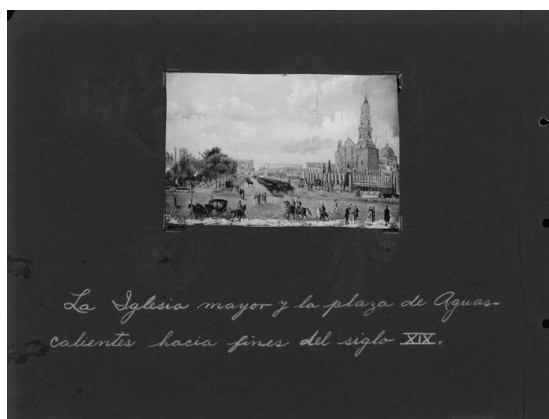 La Iglesia mayor y la plaza de Aguas-
calientes hacia fines del siglo XIX.